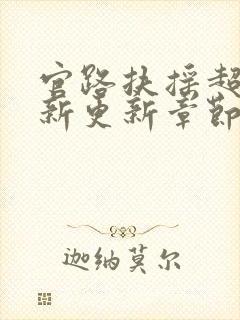 官路扶摇超
新更新章节
迦纳莫尔